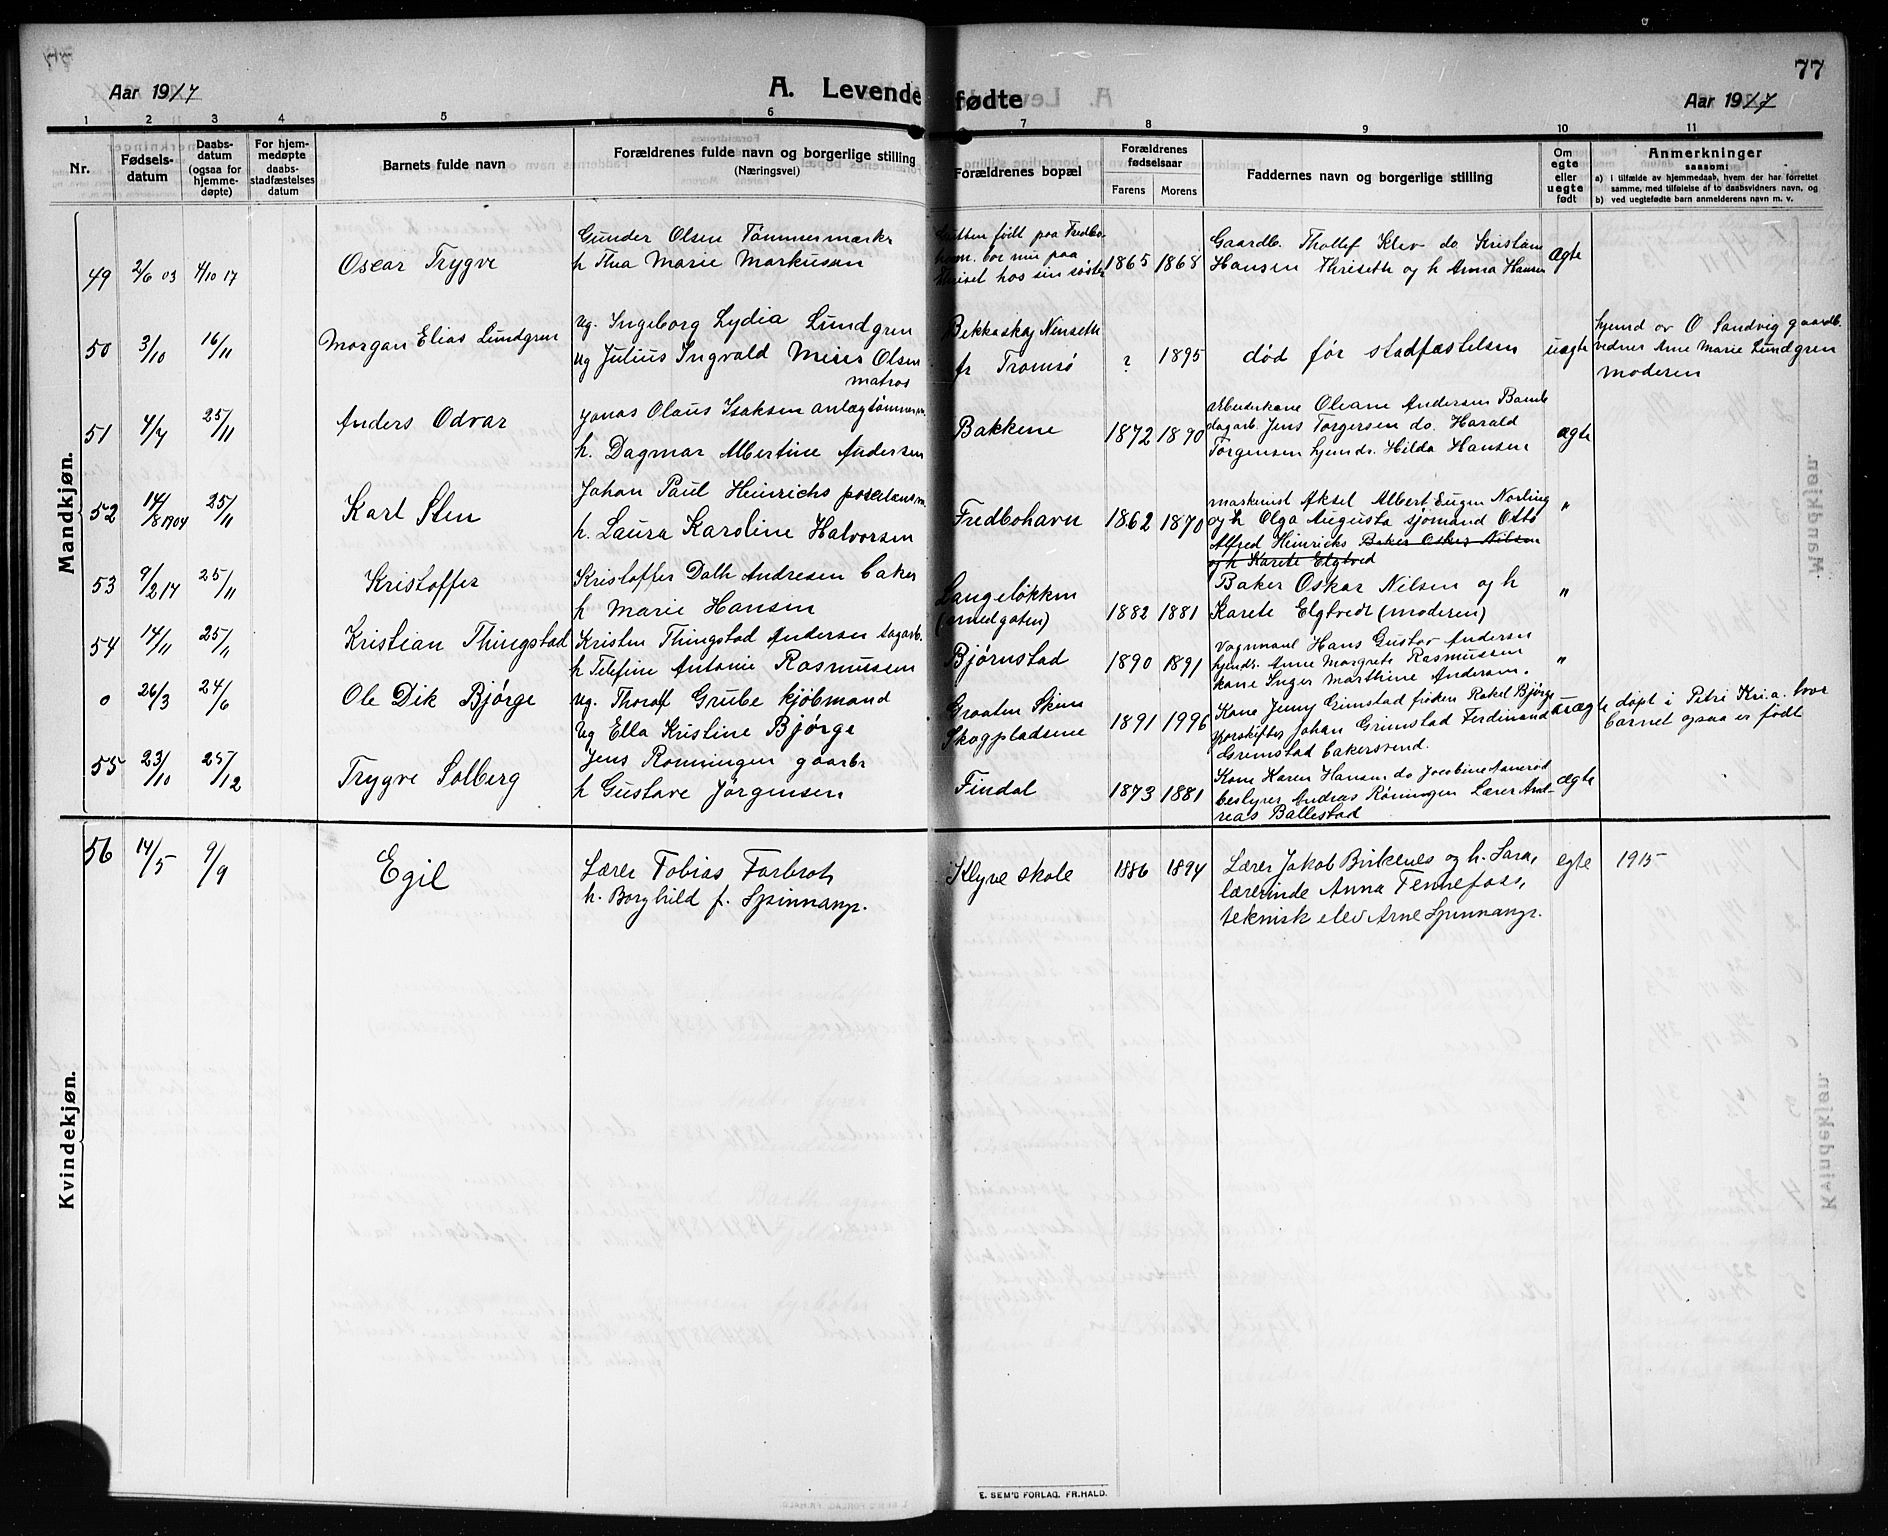 77
Aar 1917
A. Levendefødte
Aar 1917
1 2 3 4 5 6 7 8 9 10 11
Nr.
Fødsels-
datum
Daabs-
datum
(ogsaa for
hjemme-
døpte)
For hjem-
medøpte
daabs-
stadfæstelses
datum
Barnets fulde navn
Forældrenes fulde navn og borgerlige stilling
(Næringsvei)
Forældrenes bopæl
Forældrenes
fødselsaar
Farens Morens
Faddernes navn og borgerlige stilling
Om
egte
eller
uegte
født
Anmerkninger
saasom:
a) i tilfælde av hjemmedaab, hvem der har forrettet
samme, med tilføielse af to daabsvidners navn, og
b) ved uegtefødte barn anmelderens navn m. v.
Mandkjøn.
49 2/6 03 4/10 17
Oscar Trygve
Gunder Olsen Tømmermærkr
h Thea Marie Markussen
Gutten født paa Fredbo-
havn. bor nu paa
Thriset hos sin søster
1865 1868
Gaardb. Thollef Klev do Kristian
Hansen Thriseth og h Anna Hansen
ægte
50 3/10 16/11
Morgan Elias Lundgren
Ug. Ingeborg Lydia Lundgren
Ug Julius Ingvald Olsen
matros
Bekkaskaj Nenseth
fr Tromsø
? 1895
død før stadfæstelsen
uægte
hjemd av O Sandvig gaardb.
vedner Ane Marie Lundgren
moderen
51 4/7 25/11
Anders Odvar
Jonas Olaus Isaksen anlægtømmerm.
h. Dagmar Albertine Andersen
Bakkene
1872 1890
Arbeiderkone Oleane Andersen Bamle
dagarb. Jens Torgersen do. Harald
Torgensen hjemds. Hilda Hansen
ægte
52 14/8 1904 25/11
Karl Sten
Johan Paul Heinrichs porcelænsm.
h. Laura Karoline Halvorsen
Fredbohavn
1862 1870
maskinist Aksel Albert Eugen Norling
og h Olga Augusta sjømand Otto
Alfred Heinrichs Baker Oskar Nilsen
og h Karete Elgtved
"
53 9/2 17 25/11
Kristoffer
Kristoffer Dalh Andresen baker
h Marie Hansen
Langeløkken
(smedgaten)
1882 1881
Baker Oskar Nilsen og h
Karete Elgtvedt (moderen)
"
54 14/11 25/11
Kristian Thingstad
Kristen Thingstad Andersen sagarb.
h Telefine Antonie Rasmussen
Bjørnstad
1890 1891
Vognmand Hans Gustav Andersen
hjemds. Anne Margrete Rasmussen
kone Inger Marthine Andersen.
"
0 26/3 24/6
Ole Dik Bjørge
Ug. Thorolf Grube kjøbmand
Ug Ella Kristine Bjørge
Graaten Skien
Skogpladsene
1891 1996
Kone Jenny Grimstad frøken Rakel Bjørge
Johan Grimstad Ferdinand
Grimstad bakersvend.
uægte
døpt i Petri Kri.a. hvor
barnet ogsaa er født
55 23/10 25/12
Trygve Solberg
Jens Rønningen gaarbr
h Gustave Jørgensen
Findal
1873 1881
Kone Karen Hansen do Jacobine
bestyrer Andreas Røningen Lærer And-
reas Ballestad
ægte
Kvindekjøn.
56 14/5 9/9
Egil
Lærer Tobias Farbrot,
h. Borghild f. Spinnangr.
Klyve skole
1886 1894
Lærer Jakob Birkenes og h. Sara,
lærerinde Anna Tennefoss,
teknisk elev Arne Spinnangr.
egte
1915
E. SEM'S FORLAG, FR.HALD.